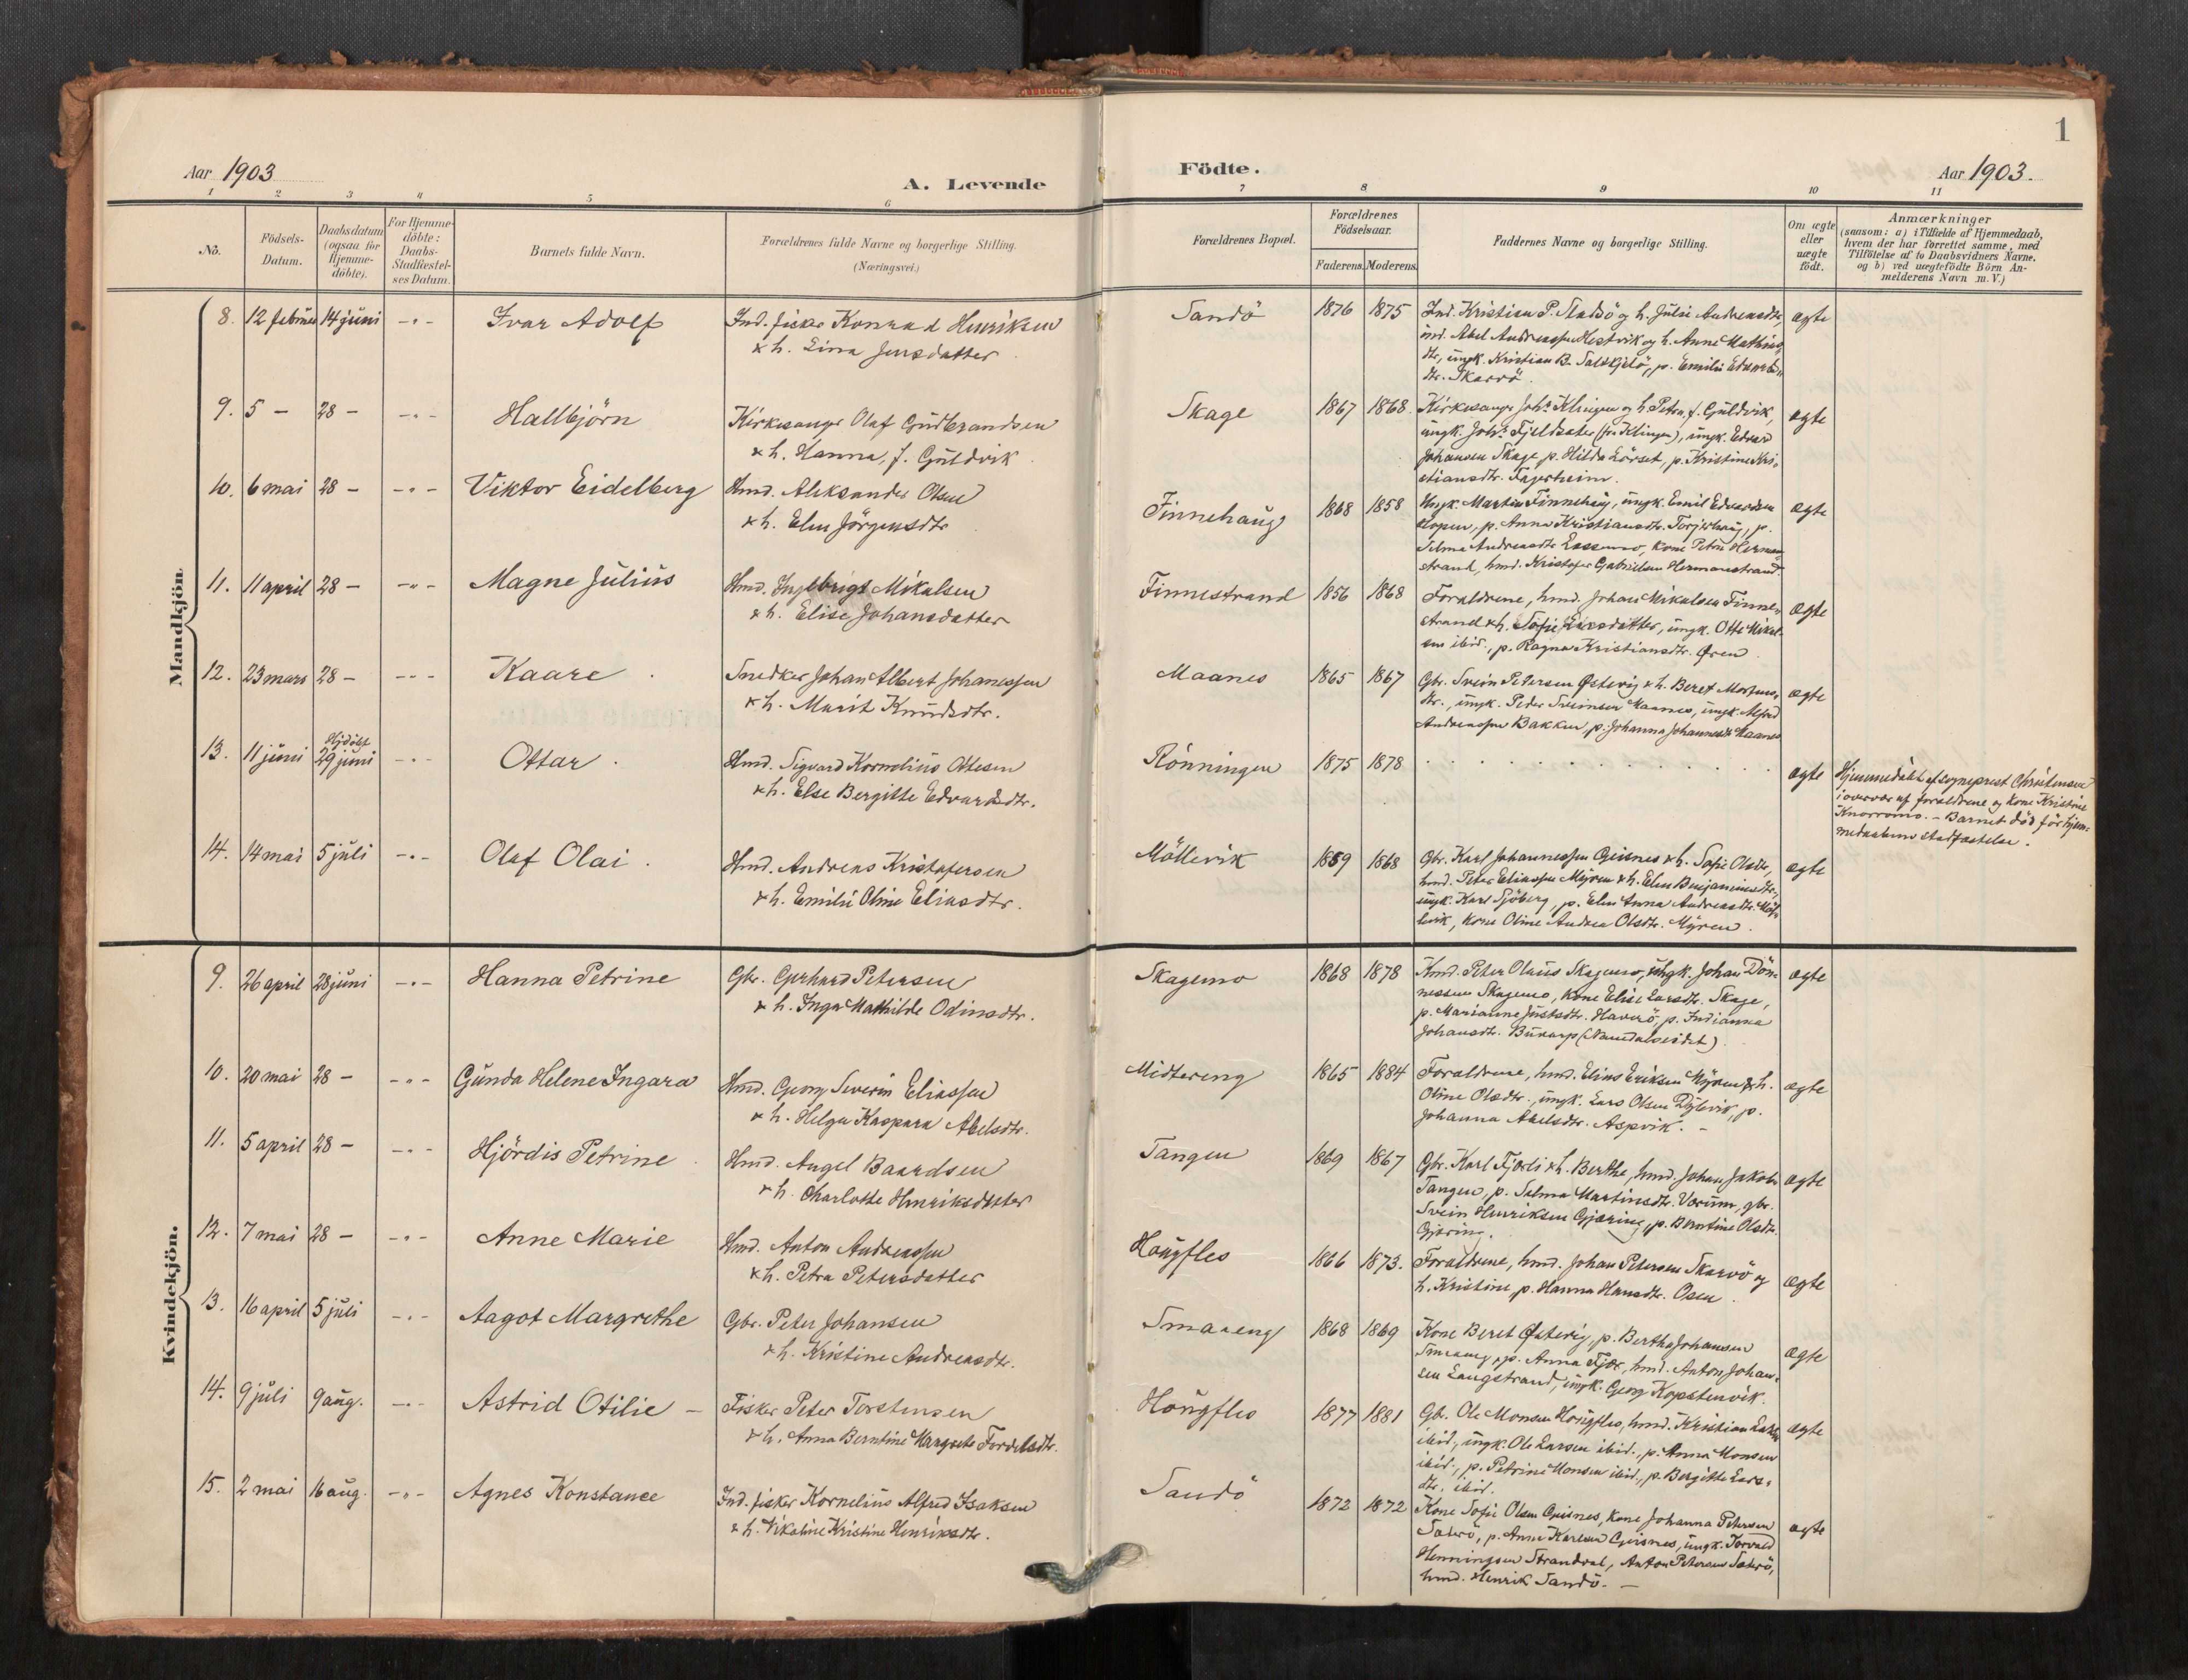 1
Aar 1903
A. Levende
Födte.
Aar 1903.
1 2 3 4 5 6 7 8 9 10 11
No.
Födsels-
Datum.
Daabsdatum
(ogsaa for
Hjemme-
döbte).
For Hjemme-
döbte:
Daabs-
Stadfæstel-
ses Datum.
Barnets fulde Navn.
Forældrenes fulde Navne og borgerlige Stilling.
(Næringsvei.)
Forældrenes Bopæl.
Forældrenes
Födselsaar.
Faderens. Moderens.
Faddernes Navne og borgerlige Stilling.
Om ægte
eller
uægte
födt.
Anmærkninger
(saasom: a) i Tilfælde af Hjemmedaab,
hvem der har forrettet samme, med
Tilföielse af to Daabsvidners Navne,
og b) ved uægtefödte Börn An-
melderens Navn m. V.)
Mandkjön
8. 12 februar 14 juni -"- Ivar Adolf Ind. fisker Konrad Henriksen
& h. Lina Jensdatter
Sandö 1876 1875 Ind. Kristian P. Sladsö og h. Julie Andreasdtr, ægte
ind. Abel Andreassen Hestvik og h. Anne Mathias
dtr, ungk. Kristian B. , p. Emilie
dtr. Skarvö.
9. 5 - 28 - -"- Hallbjörn Kirkesanger Olaf Gudbrandsen
& h. Hanna, f. Guldvik
Skage 1867 1868. Kirkesanger Johs. Klingen og h. Petra, f. Guldvik, ægte
ungk. Johs. Fjeldsater (fra Klingen), ungk. Edvard
Johansen Skage, p. Hilda Lörset, p. Kristine Kri-
stiansdtr. Fagerheim.
10. 6 mai 28 - -"- Viktor Eidelberg Hmd. Aleksander Olsen
& h. Elen Jörgensdtr
Finnehaug 1868 1858 Ungk. Martin Finnehaug, ungk. Emil Edvardsen ægte
Hopen, p. Anna Kristiansdtr. Torjerhaug, p.
Selma Andreasdtr. , kone Petra Herman-
strand, hmd. Kristofer Gabrielsen Hermanstrand.
11. 11 april 28 - -"- Magne Julius Hmd. Ingebrigt Mikalsen
& h. Elise Johansdatter
Finnestrand 1856 1868 Forældrene, hmd. Johan Mikalsen Finne- ægte
strand & h. Sofie Larsdatter, ungk. Otto Mikal-
sen ibid., p. Ragna Kristiansdtr. Øren
12. 23 mars 28 - -"- Kaare Snedker Johan Albert Johanessen
& h. Marit Knudsdtr.
Maanes 1865 1867 Gbr. Svein Petersen Østevig & h. Beret Mortens- ægte
dtr., ungk. Peder Sveinsen Maanes, ungk. Alfred
Andreassen Bakken, p. Johanna Johannesdtr. Maanes
13. 11 juni Hjdöbt
29 juni -"- Ottar Hmd. Sigvard Kornelius Ottesen
& h. Else Bergitte Edvardsdtr.
Rönningen 1875 1878 ægte Hjemmedöbt af sogneprest Christensen
i overvær af forældrene og kone Kristine
Knorromo. - Barnet död för hjem-
medaabens stadfæstelse.
14. 14 mai 5 juli -"- Olaf Olai Hmd. Andreas Kristofersen
& h. Emilie Oline Eliasdtr.
Möllevik 1859 1868 Gbr. Karl Johannessen Geisnes & h. Sofie Olsdtr, ægte
hmd. Peter Eliassen Myren & h. Elen Benjaminsdtr,
ungk. Karl Sjöberg, p. Elen Anna Andreasdtr. Möl-
levik, kone Oline Andrea Olsdtr. Myren.
Kvindekjön.
9. 26 april 28 juni -"- Hanna Petrine Gbr. Gerhard Petersen
& h. Inga Mathilde Odinsdtr.
Skagemo 1868 1878 Hmd. Peter Olaus Skagemo, ungk. Johan Dön- ægte
nessen Skagemo, kone Elise Larsdtr. Skage,
p. Marianne Justsdtr. Haverö, p. Indianna
Johansdtr. (Namdalseidet).
10. 20 mai 28 - -"- Gunda Helene Ingara Hmd. Georg Severin Eliassen
& h. Helga Kaspara Abelsdtr.
Midtereng 1865 1884 Forældrene, hmd. Elias Eriksen Myren & h. ægte
Oline Olsdtr., ungk. Lars Olsen , p.
Johanna Abelsdtr. Aspvik. -
11. 5 april 28 - -"- Hjördis Petrine Hmd. Angel Baardsen
& h. Charlotte Henriksdatter
Tangen 1869 1867 Gbr. Karl Fjærli & h. Berthe, hmd. Johan Jakobs ægte
Tangen, p. Selma Martinsdtr. Værum, gbr.
Svein Henriksen Gjæring, p. Berntine Olsdtr.
Gjæring.
12. 7 mai 28 - -"- Anne Marie Hmd. Anton Andreassen
& h. Petra Petersdatter
Haugfles 1866 1873. Forældrene, hmd. Johan Petersen Skarvö og ægte
h. Kristine, p. Hanna Hansdtr. Osen
13. 16 april 5 juli -"- Aagot Margrethe Gbr. Peter Johansen
& h. Kristine Andreasdtr.
Smaaeng 1868 1869 Kone Beret Østevig, p. Bertha Johansen ægte
Smaaeng, p. Anna Fjær, hmd. Anton Johan-
sen Langstrand, ungk. Georg Kopstenvik.
14. 9 juli 9 aug. -"- Astrid Otilie - Fisker Peter Torstensen
& h. Anna Berntine Margrete Fordelsdtr.
Haugfles 1877 1881 Gbr. Ole Monsen Haugfles, hmd. Kristian Larsen ægte
ibid., ungk. Ole Larsen ibid., p. Anna Monsen
ibid., p. Petrine Monsen ibid., p. Bergitte Lars-
dtr. ibid.
15. 2 mai 16 aug. -"- Agnes Konstance Ind. fisker Kornelius Alfred Isaksen
& h. Nikoline Kristine Henriksdtr.
Sandö 1872 1872 Kone Sofie Olsen Geisnes, kone Johanna Petersen ægte
Saterö, p. Anna Karlsen Geisnes, ungk. Torvald
Henningsen Strandval, Anton Petersen Saterö,
hmd. Henrik Sandö. -